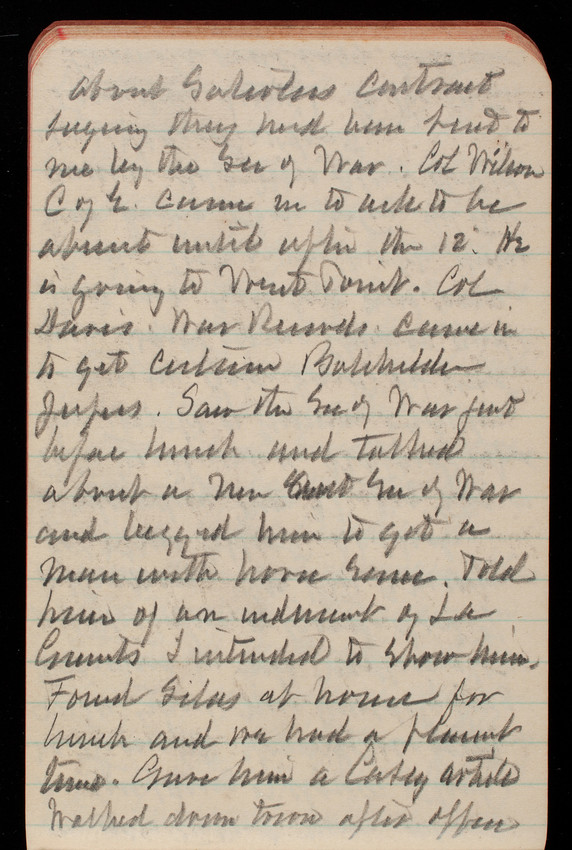 about contract
saying they had been sent to
me by the Sec of War. Col Wilson
C of E. came in to ask to be
absent until after the 12". He
is going to West Point. Col
Davis. War Records came in
to get certain Batchelder
papers. Saw the Sec of War just
before lunch and talked
about a new Asst Sec of War
and begged him to get a
man with horse sense. Told
him of an of La
Counts I intended to show him.
Found Silas at home for
lunch and we had a pleasant
time. Gave him a Casey article
Walked down town after office